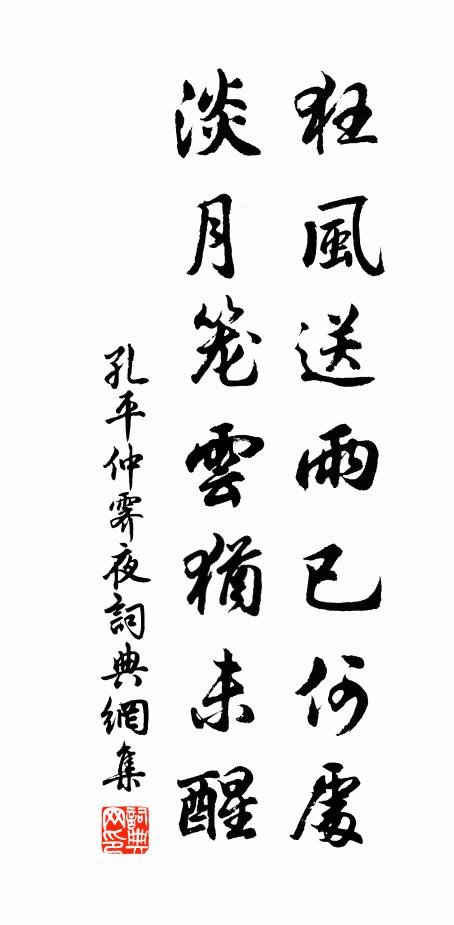 狂風送雨已何處
淡月笼雲猶未醒
孔平仲霽夜詞典網集
詞典网印